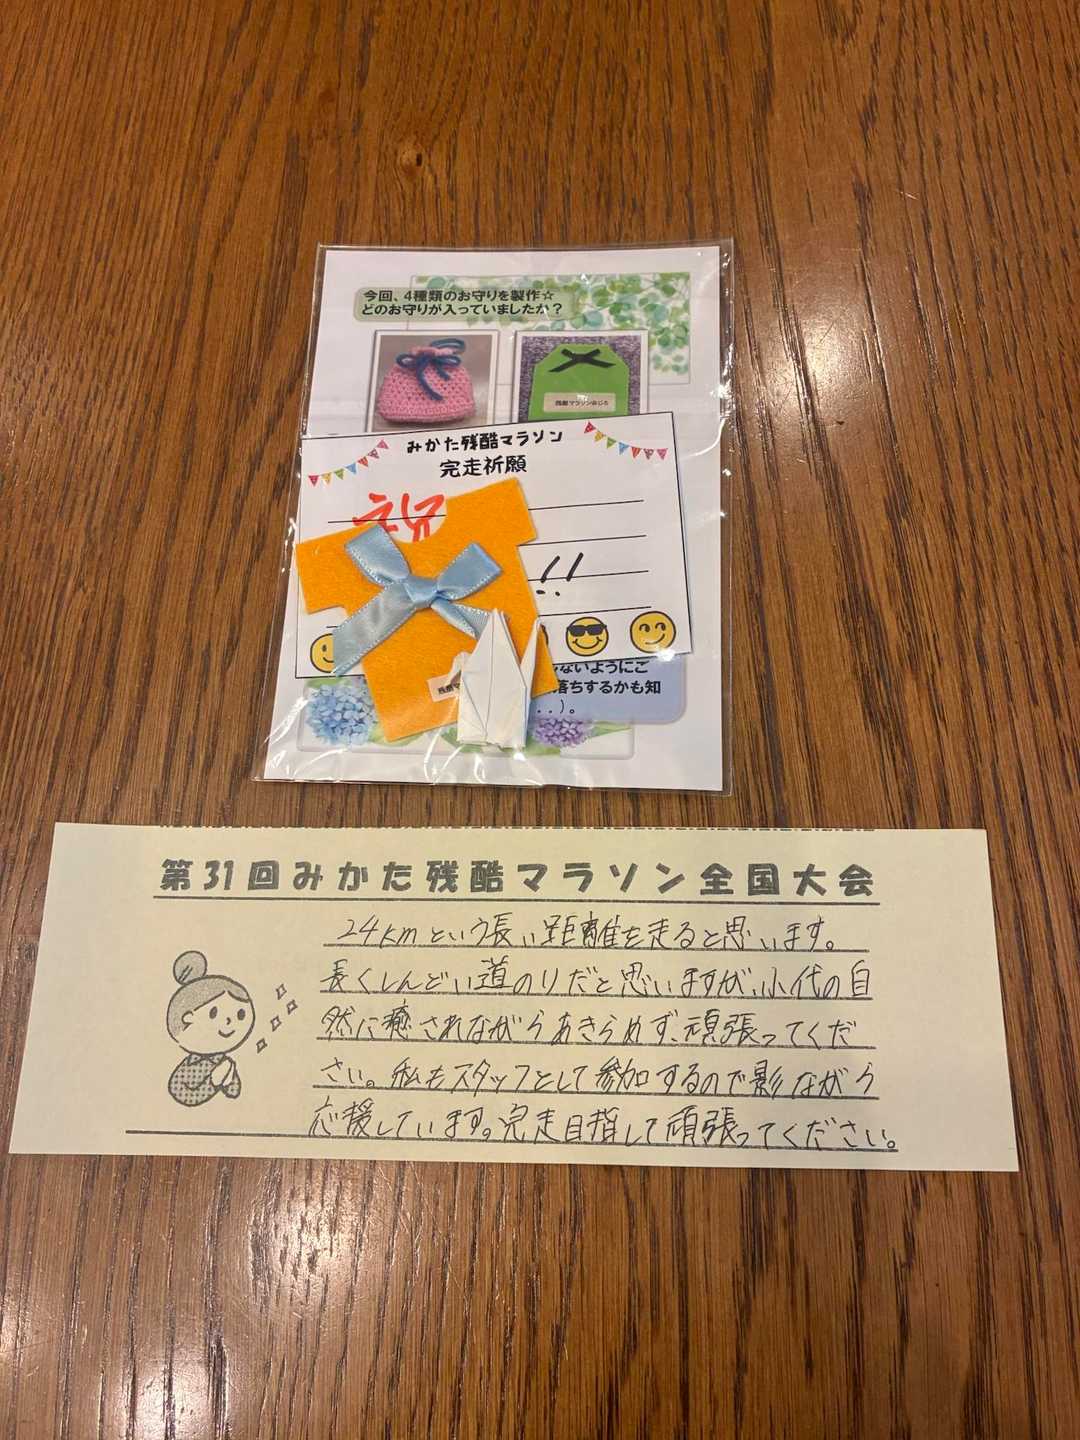 今回、4種類のお守りを製作☆
どのお守りが入っていましたか？
残酷マラソンみじろ
みかた残酷マラソン
完走祈願
祝
!!
ないようにご
落ちするかも知
..)。
残酷マ
第31回みかた残酷マラソン全国大会
24kmという長い距離を走ると思います。
長くしんどい道のりだと思いますが、小代の自
然に癒されながらあきらめず、頑張ってくだ
さい。私もスタッフとして参加するので影ながら
応援しています。完走目指して頑張ってください。